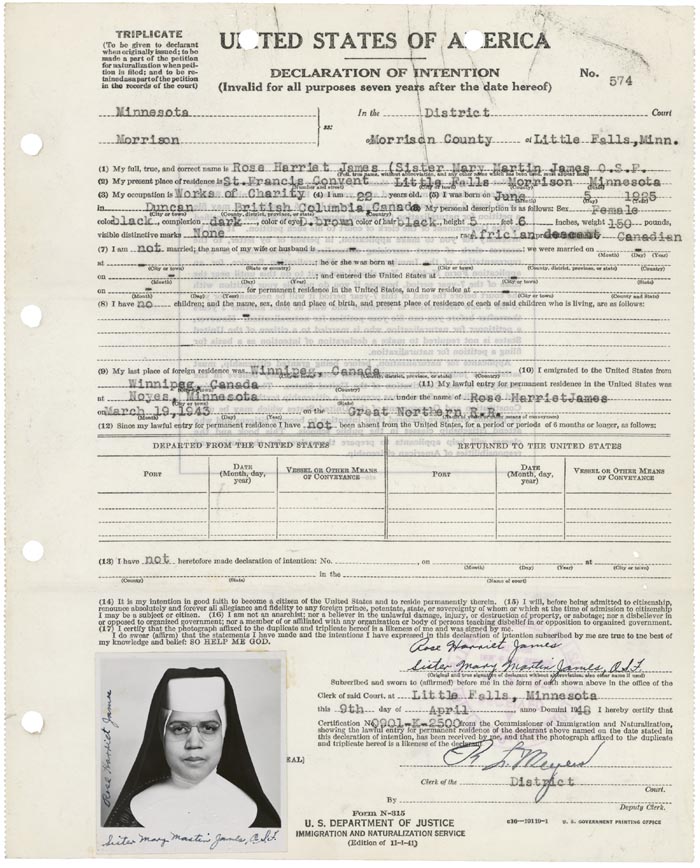 TRIPLICATE
(To be given to declarant
when originally issued; to be
made a part of the petition
for naturalization when peti-
tion is filed; and to be re-
tained as a part of the petition
in the records of the court)
UNITED STATES OF AMERICA
DECLARATION OF INTENTION
(Invalid for all purposes seven years after the date hereof)
No. 574
Minnesota In the District Court
ss:
Morrison of Morrison County at Little Falls, Minn.
(1) My full, true, and correct name is Rose Harriet James (Sister Mary Martin James O.S.F.
(Full, true name, without abbreviation, and any other name which has been used, must appear here)
(2) My present place of residence is St. Francis Convent Little Falls Morrison Minnesota
(Number and street) (City or town) (County) (State)
(3) My occupation is Works of Charity (4) I am 22 years old. (5) I was born on June 5 1925
(Month) (Day) (Year)
in Duncan British Columbia Canada (6) My personal description is as follows: Sex Female
(City or town) (County, district, province, or state) (Country)
color black, complexion dark, color of eyes D.brown color of hair black, height 5 feet 6 inches, weight 150 pounds,
visible distinctive marks None race African descent Canadian
(7) I am not married; the name of my wife or husband is - ; we were married on -
(Month) (Day) (Year)
at - ; he or she was born at -
(City or town) (State or country) (City or town) (County, district, province, or state) (Country)
on - ; and entered the United States at -
(Month) (Day) (Year) (City or town) (State)
on - for permanent residence in the United States, and now resides at -
(Month) (Day) (Year) (City or town) (County and State)
(8) I have no children; and the name, sex, date and place of birth, and present place of residence of each of said children who is living, are as follows:
-
(9) My last place of foreign residence was Winnipeg, Canada (10) I emigrated to the United States from
(City or town) (County, district, province, or state) (Country)
Winnipeg, Canada (11) My lawful entry for permanent residence in the United States was
(City or town) (Country)
at Noyes, Minnesota under the name of Rose HarrietJames
(City or town) (State)
on March 19,1943 on the Great Northern R.R.
(Month) (Day) (Year)
(12) Since my lawful entry for permanent residence I have not been absent from the United States, for a period or periods of 6 months or longer, as follows:
DEPARTED FROM THE UNITED STATES RETURNED TO THE UNITED STATES
PORT DATE (Month, day, year) VESSEL OR OTHER MEANS OF CONVEYANCE PORT DATE (Month, day, year) VESSEL OR OTHER MEANS OF CONVEYANCE
(13) I have not heretofore made declaration of intention: No. on at
(Month) (Day) (Year) (City or town)
in the
(County) (State) (Name of court)
(14) It is my intention in good faith to become a citizen of the United States and to reside permanently therein. (15) I will, before being admitted to citizenship,
renounce absolutely and forever all allegiance and fidelity to any foreign prince, potentate, state, or sovereignty of whom or which at the time of admission to citizenship
I may be a subject or citizen. (16) I am not an anarchist; nor a believer in the unlawful damage, injury, or destruction of property, or sabotage; nor a disbeliever in
or opposed to organized government; nor a member of or affiliated with any organization or body of persons teaching disbelief in or opposition to organized government.
(17) I certify that the photograph affixed to the duplicate and triplicate hereof is a likeness of me and was signed by me.
I do swear (affirm) that the statements I have made and the intentions I have expressed in this declaration of intention subscribed by me are true to the best of
my knowledge and belief: SO HELP ME GOD.
Rose Harriet James
Sister Mary Martin James, O.S.F.
(Original and true signature of declarant without abbreviation, also other name if used)
Subscribed and sworn to (affirmed) before me in the form of oath shown above in the office of the
Clerk of said Court, at Little Falls, Minnesota
this 9th day of April anno Domini 1948 I hereby certify that
Certification No 0901-K-2500 from the Commissioner of Immigration and Naturalization,
showing the lawful entry for permanent residence of the declarant above named on the date stated in
this declaration of intention, has been received by me, and that the photograph affixed to the duplicate
and triplicate hereof is a likeness of the declarant
Clerk of the District Court.
By Deputy Clerk.
Rose Harriet James
Sister Mary Martin James, O.S.F.
EAL)
Form N-315
U. S. DEPARTMENT OF JUSTICE
IMMIGRATION AND NATURALIZATION SERVICE
(Edition of 11-1-41)
U. S. GOVERNMENT PRINTING OFFICE